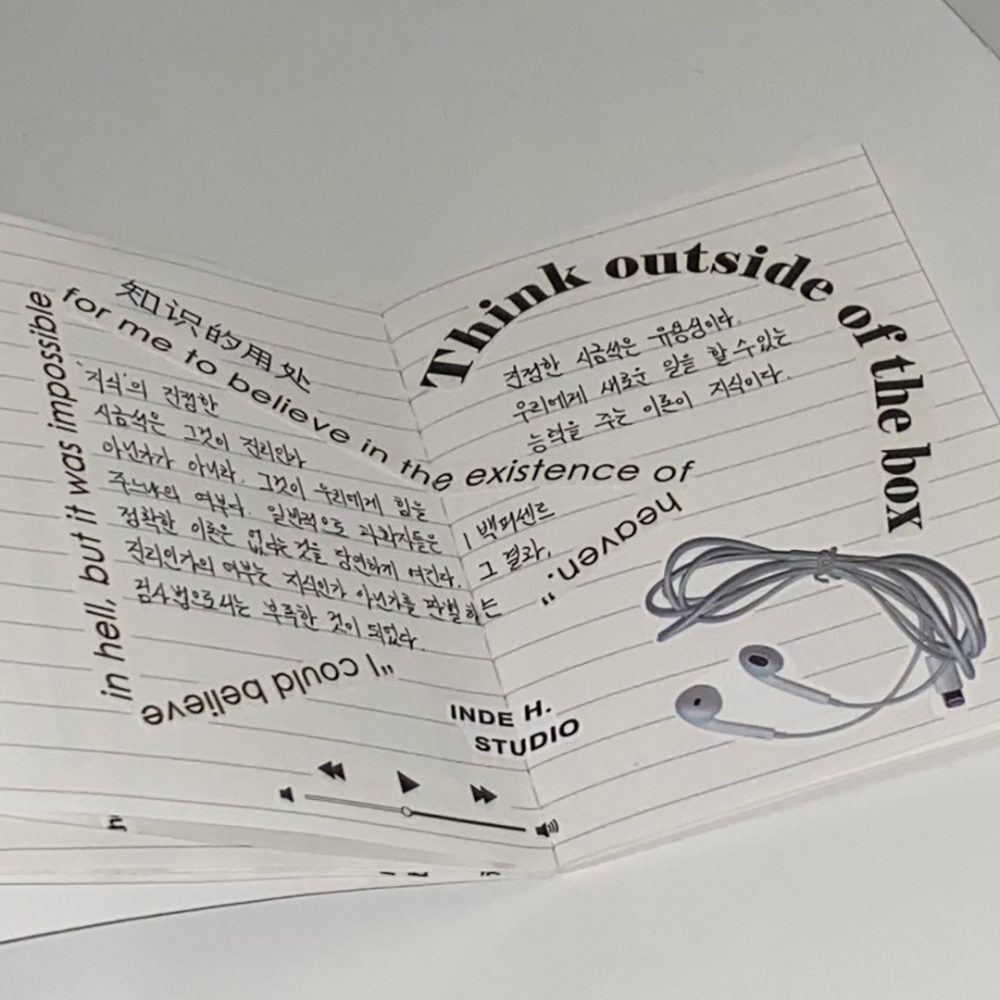 知识的用处
"I could believe
in hell, but it was impossible
for me to believe in the existence of
heaven."
'지식'의 진정한
시금석은 그것이 진리인가
아닌가가 아니라, 그것이 우리에게 힘을
주느냐의 여부다. 일반적으로 과학자들은 | 백퍼센트
정확한 이론은 없다는 것을 당연하게 여긴다. 그 결과,
진리인가의 여부는 지식인가 아닌가를 판별하는
검사법으로서는 부족한 것이 되었다.
INDE H.
STUDIO
Think outside of the box
진정한 시금석은 유용성이다.
우리에게 새로운 일을 할 수 있는
능력을 주는 이론이 지식이다.